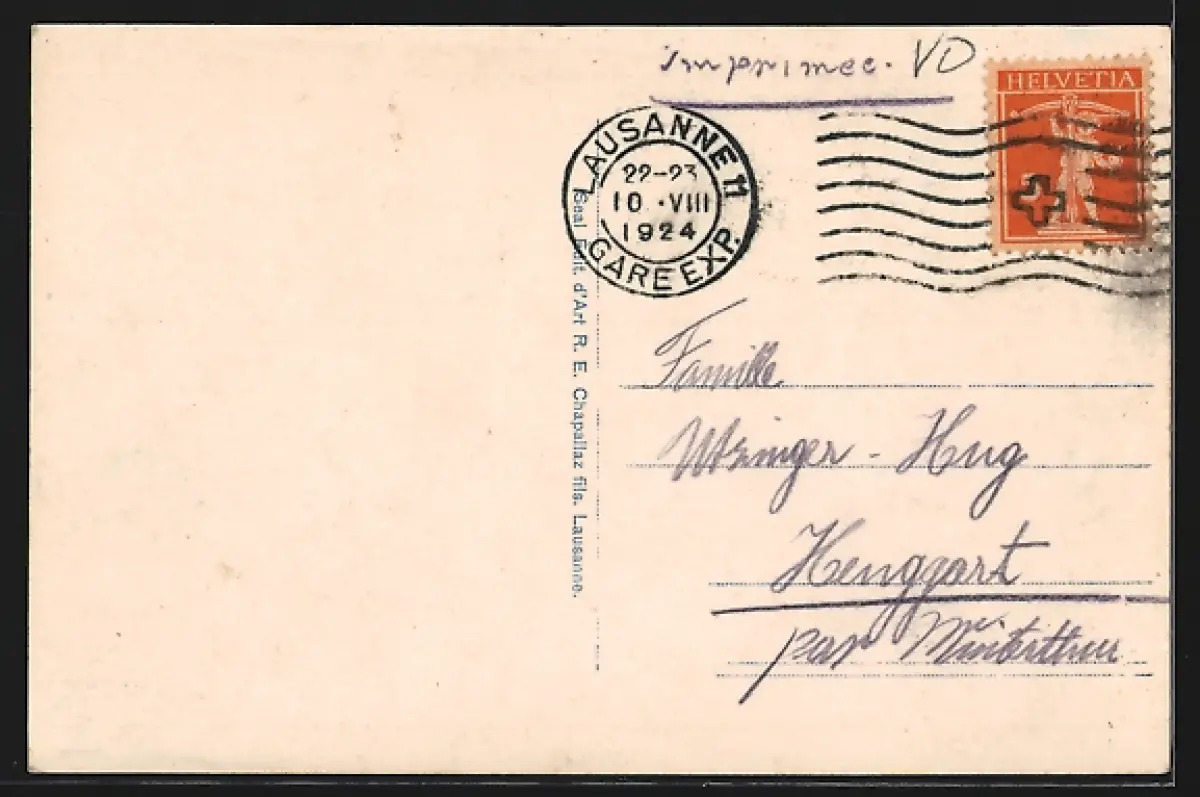 imprimee. VD
HELVETIA
LAUSANNE 11
22-23
10 . VIII
1924
GARE EXP.
Seal Edit. d'Art R. E. Chapallaz fils. Lausanne.
Famille
Utzinger - Hug
Henggart
par Winterthur